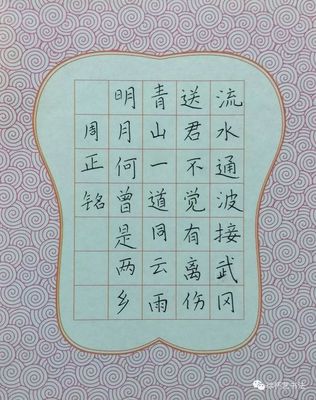 流水通波接武冈
送君不觉有离伤
青山一道同云雨
明月何曾是两乡
周正铭